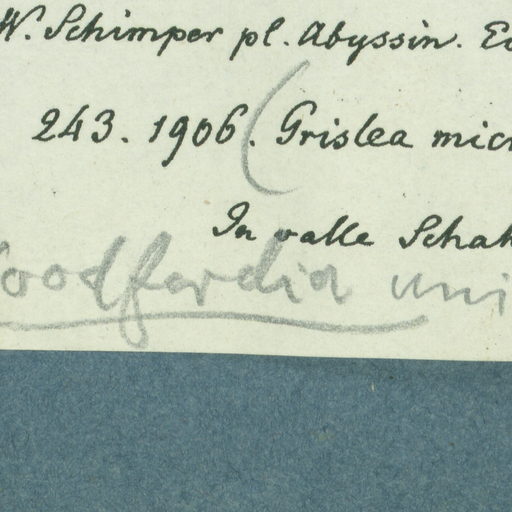 W. Schimper pl. Abyssin. Ed
243. 1906. (Grislea micr
In valle Schah
Woodfordia uni